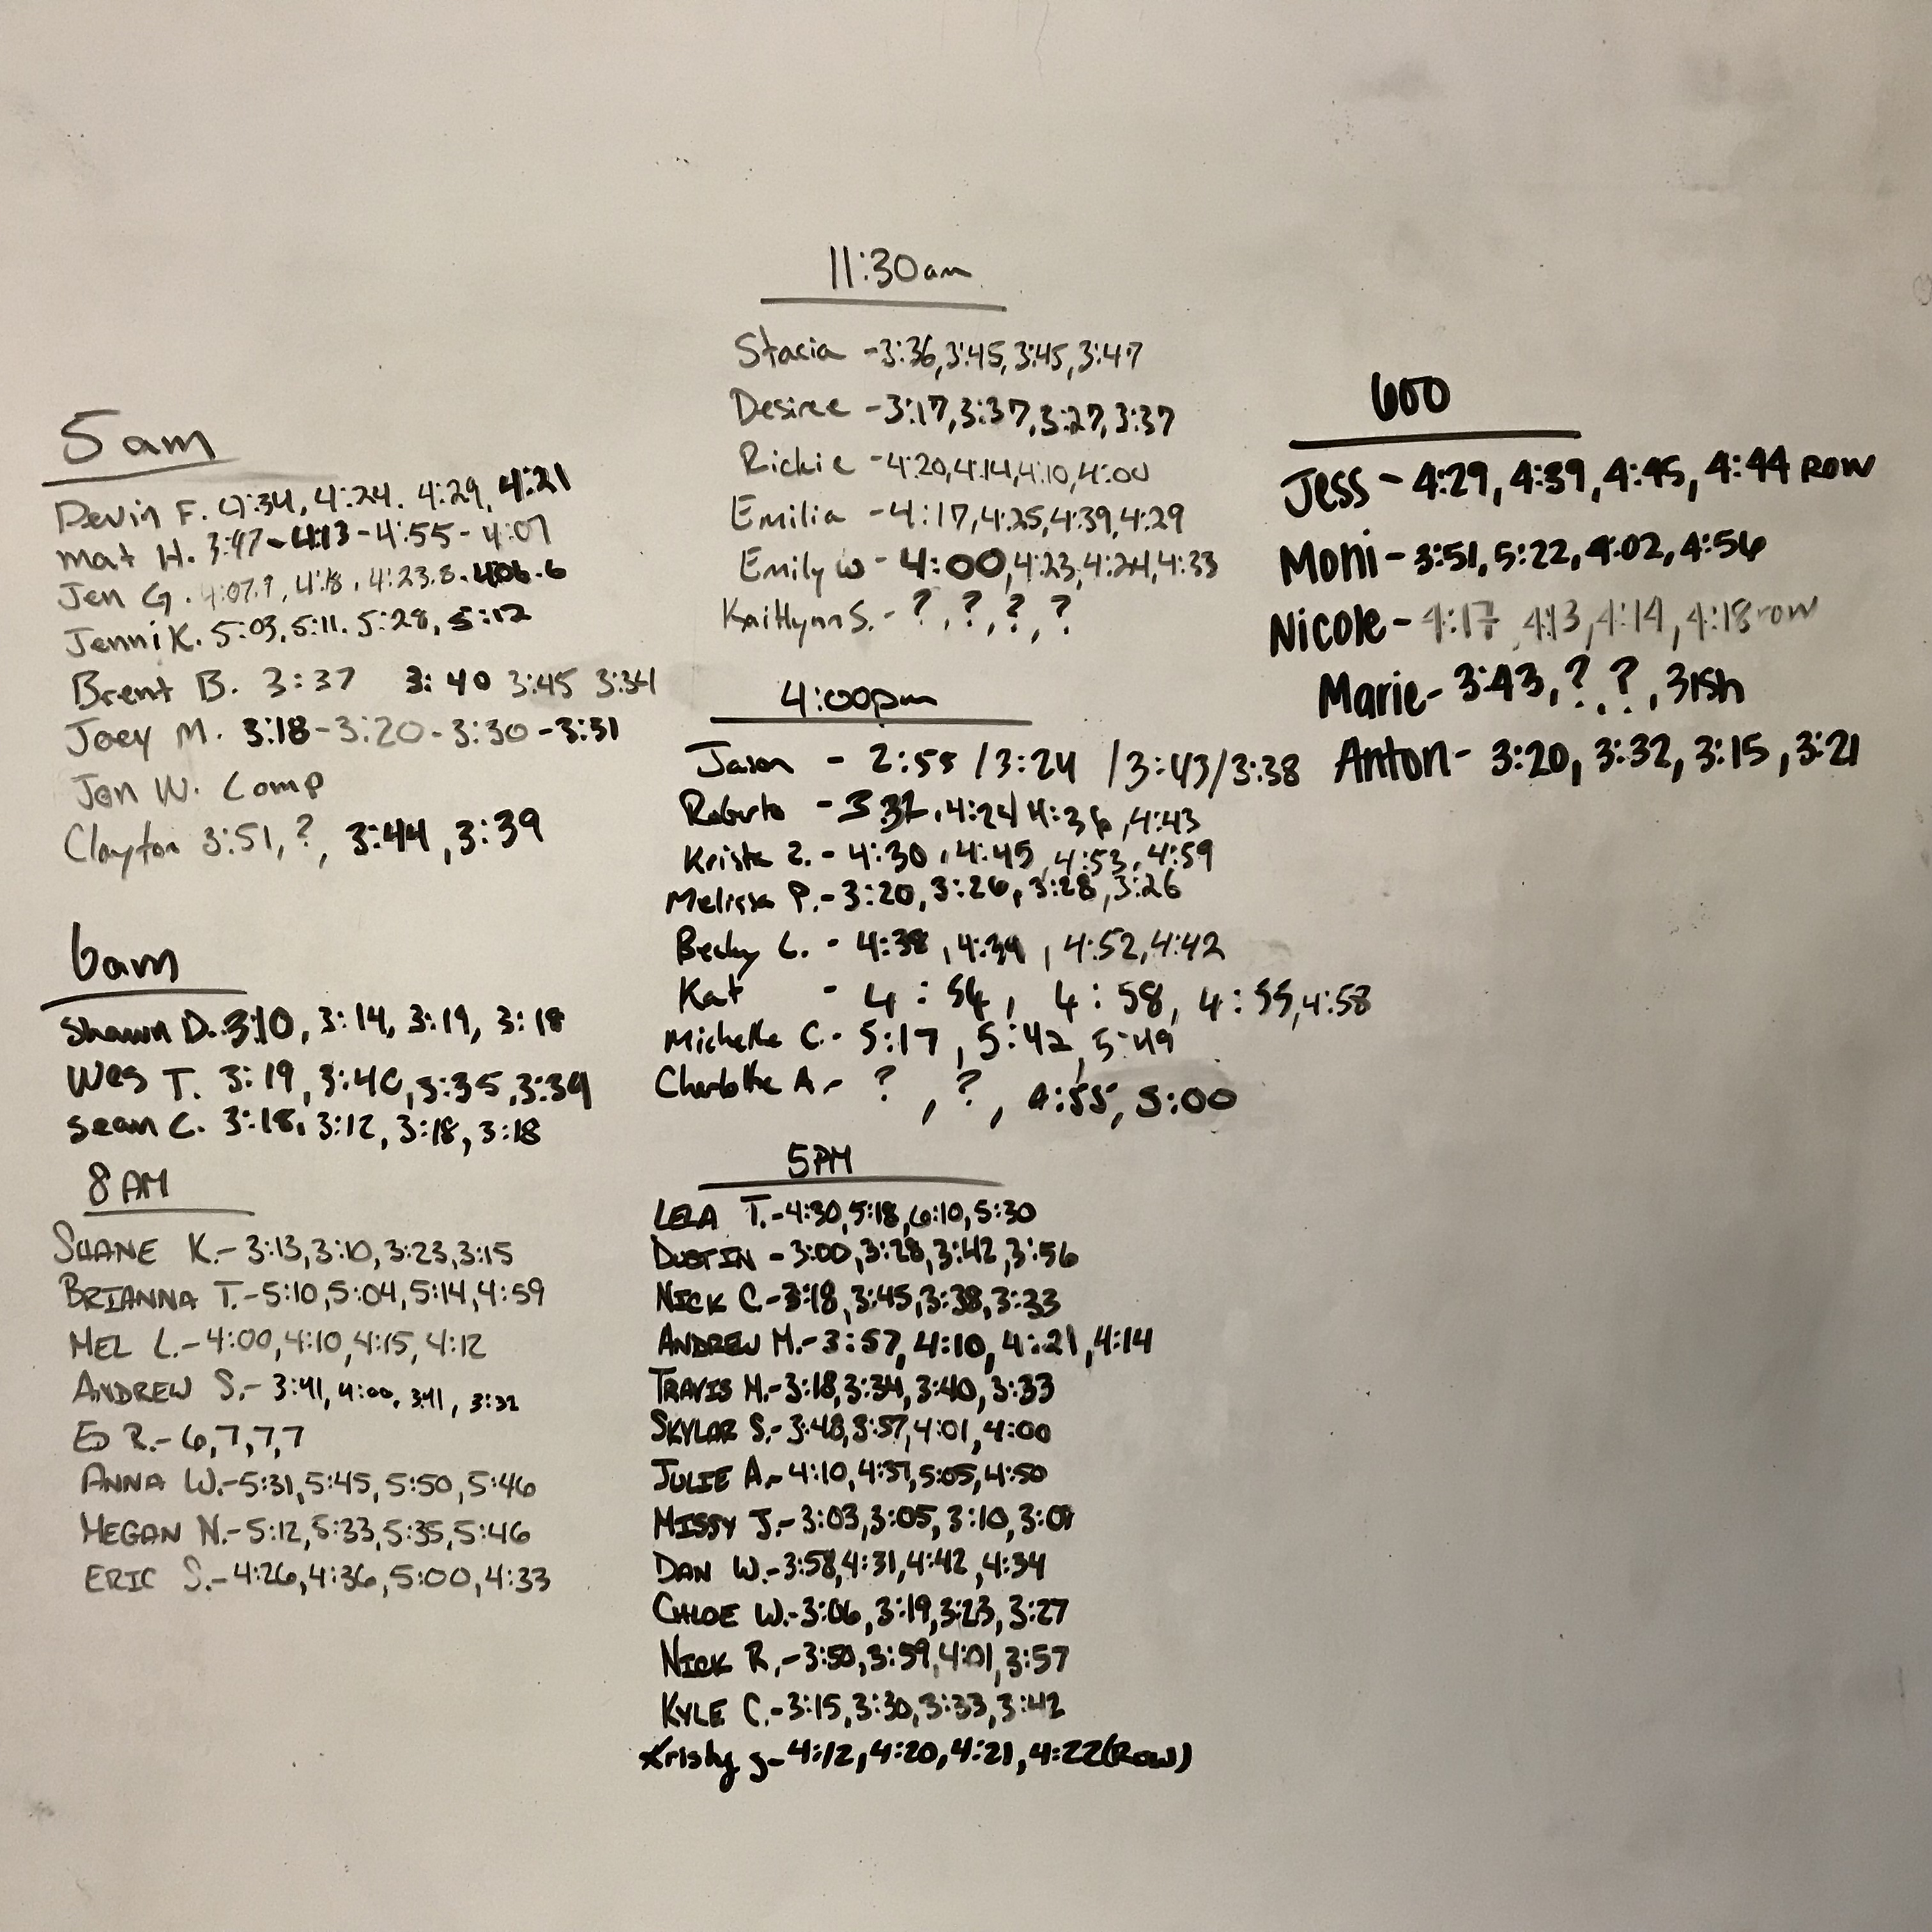 5am
Devin F. 4:34, 4:24. 4:29, 4:21
Mat H. 3:47-4:13-4:55-4:07
Jen G. 4:07.9, 4:18, 4:23.8. 406.6
Jenni K. 5:03, 5:11. 5:28, 5:12
Brent B. 3:37 3:40 3:45 3:34
Joey M. 3:18-3:20-3:30-3:31
Jon W. Comp
Clayton 3:51, ?, 3:44, 3:39
6am
Shawn D. 3:10, 3:14, 3:19, 3:18
Wes T. 3:19, 3:40, 3:35, 3:39
Sean C. 3:18, 3:12, 3:18, 3:18
8 AM
SHANE K.-3:13,3:10,3:23,3:15
BRIANNA T.-5:10,5:04,5:14,4:59
MEL L.-4:00,4:10,4:15,4:12
ANDREW S.-3:41, 4:00, 3:41, 3:32
ED R.-6,7,7,7
ANNA W.-5:31,5:45,5:50,5:46
MEGAN N.-5:12,5:33,5:35,5:46
ERIC S.-4:26,4:36,5:00,4:33
11:30am
Stacia -3:36,3:45,3:45,3:47
Desiree -3:17,3:37,3:27,3:37
Rickie -4:20,4:14,4:10,4:00
Emilia -4:17,4:25,4:39,4:29
Emily W - 4:00,4:23,4:24,4:33
Kaitlynn S. - ?, ?, ?, ?
4:00pm
Jason - 2:55 /3:24 /3:43/3:38
Roberto - 3:32, 4:24/ 4:36, 4:43
Krista Z. - 4:30, 4:45, 4:53, 4:59
Melissa P. - 3:20, 3:26, 3:28, 3:26
Becky C. - 4:38, 4:39, 4:52, 4:42
Kat - 4:54, 4:58, 4:55, 4:58
Michelle C. - 5:17, 5:42, 5:49
Charlotte A - ?, ?, 4:55, 5:00
5PM
LELA T.-4:30,5:18,6:10,5:30
DUSTIN -3:00,3:28,3:42,3:56
NICK C.-3:18,3:45,3:38,3:33
ANDREW M.-3:57,4:10,4:21,4:14
TRAVIS H.-3:18,3:34,3:40,3:33
SKYLAR S.-3:48,3:57,4:01,4:00
JULIE A.-4:10,4:37,5:05,4:50
MISSY J.-3:03,3:05,3:10,3:09
DAN W.-3:58,4:31,4:42,4:34
CHLOE W.-3:06,3:19,3:23,3:27
NICK R.-3:50,3:59,4:01,3:57
KYLE C.-3:15,3:30,3:33,3:42
Kristy g-4:12,4:20,4:21,4:22(Row)
600
Jess - 4:29, 4:39, 4:45, 4:44 ROW
Moni - 3:51, 5:22, 4:02, 4:56
Nicole - 4:17, 4:13, 4:14, 4:18 row
Marie - 3:43, ?, ?, 31sh
Anton - 3:20, 3:32, 3:15, 3:21